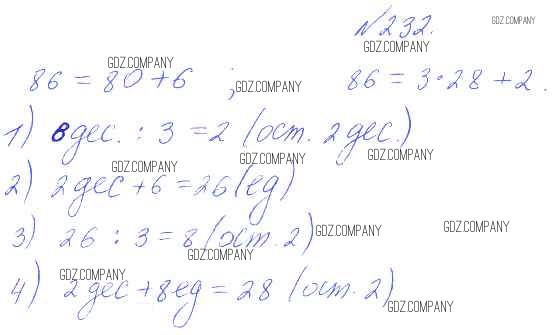 №232. GDZ.COMPANY
GDZ.COMPANY GDZ.COMPANY
86 = 80 + 6 ; GDZ.COMPANY 86 = 3·28 + 2.
1) 8 дес. : 3 = 2 (ост. 2 дес.)
GDZ.COMPANY GDZ.COMPANY GDZ.COMPANY
2) 2 дес + 6 = 26 (ед)
3) 26 : 3 = 8 (ост. 2) GDZ.COMPANY GDZ.COMPANY
GDZ.COMPANY GDZ.COMPANY
4) 2 дес + 8 ед = 28 (ост. 2)
GDZ.COMPANY